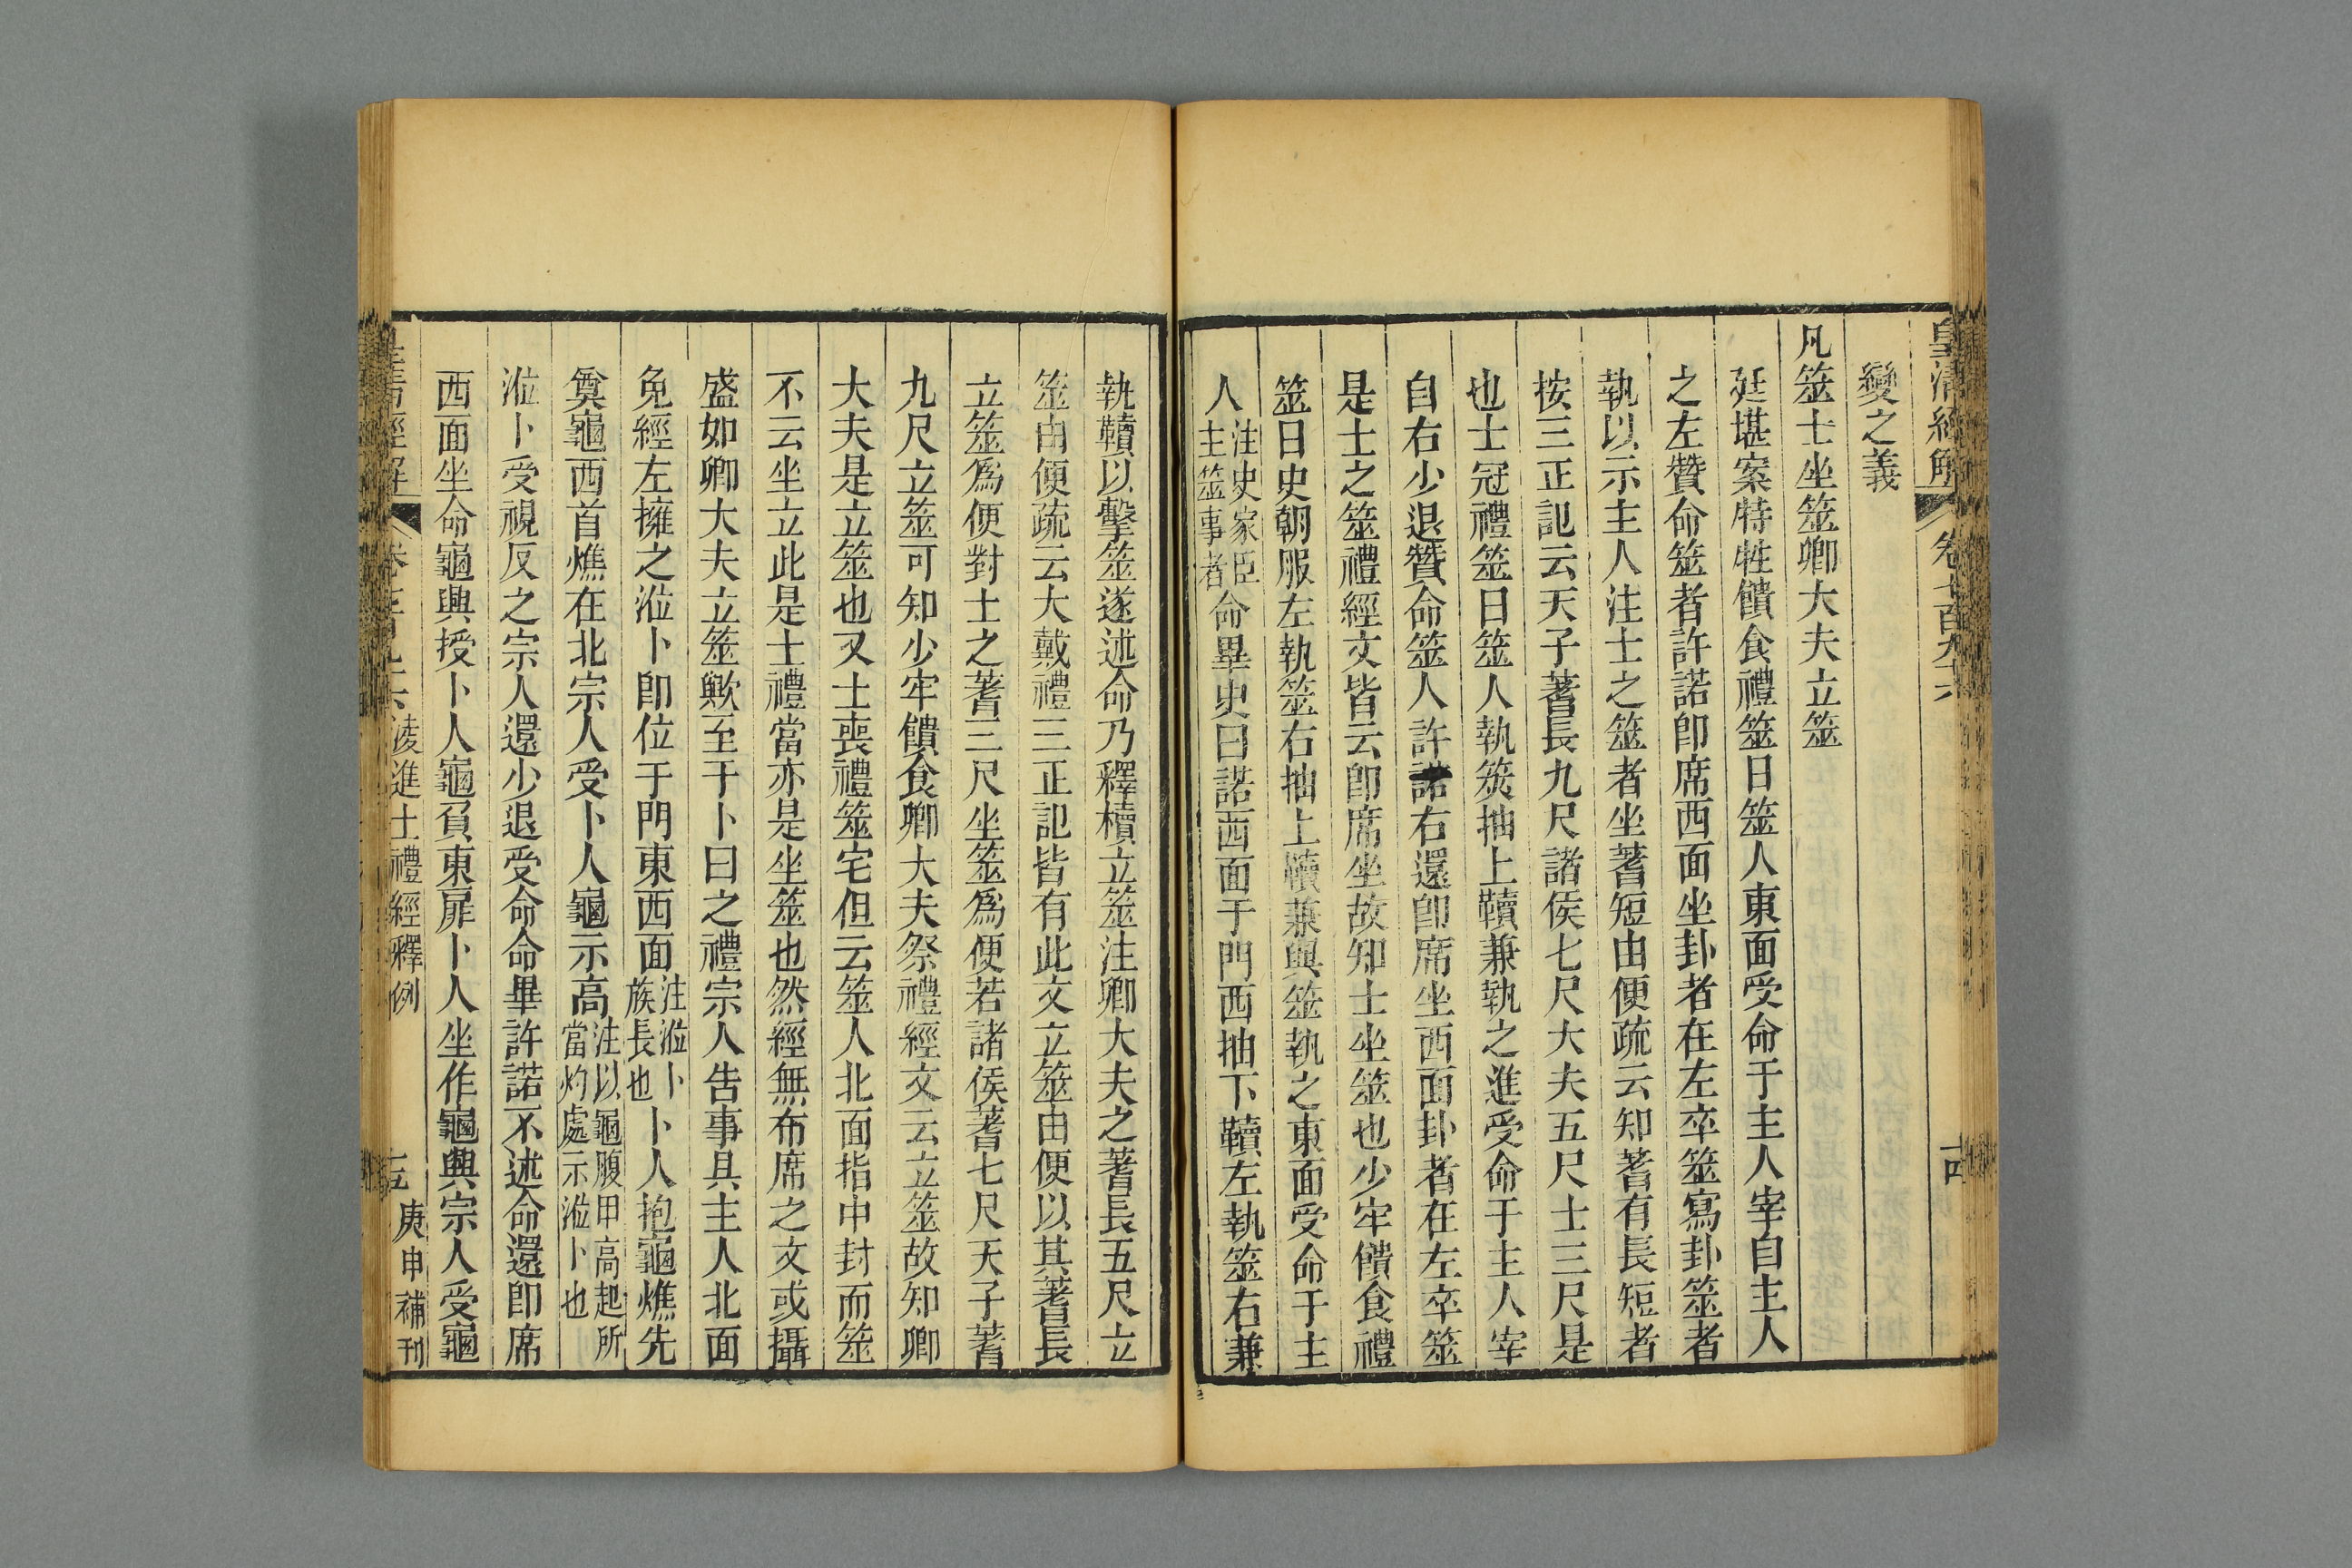 皇清經解 卷七百九十六 十四
變之義
凡筮士坐筮卿大夫立筮
廷堪案特牲饋食禮筮日筮人東面受命于主人宰自主人
之左贊命筮者許諾卽席西面坐卦者在左卒筮寫卦筮者
執以示主人注士之筮者坐蓍短由便疏云知蓍有長短者
按三正記云天子蓍長九尺諸侯七尺大夫五尺士三尺是
也士冠禮筮日筮人執筴抽上韇兼執之進受命于主人宰
自右少退贊命筮人許諾右還卽席坐西面卦者在左卒筮
是士之筮禮經文皆云卽席坐故知士坐筮也少牢饋食禮
筮日史朝服左執筮右抽上韥兼與筮執之東面受命于主
人注史家臣主筮事者命畢史曰諾西面于門西抽下韇左執筮右兼
執韇以擊筮遂述命乃釋櫝立筮注卿大夫之蓍長五尺立
筮由便疏云大戴禮三正記皆有此文立筮由便以其蓍長
立筮爲便對士之蓍三尺坐筮爲便若諸侯蓍七尺天子蓍
九尺立筮可知少牢饋食卿大夫祭禮經文云立筮故知卿
大夫是立筮也又士喪禮筮宅但云筮人北面指中封而筮
不云坐立此是士禮當亦是坐筮也然經無布席之文或攝
盛如卿大夫立筮歟至于卜日之禮宗人告事具主人北面
免絰左擁之涖卜卽位于門東西面注涖卜族長也卜人抱龜燋先
奠龜西首燋在北宗人受卜人龜示高注以龜腹甲高起所當灼處示涖卜也
涖卜受視反之宗人還少退受命命畢許諾不述命還卽席
西面坐命龜興授卜人龜負東扉卜人坐作龜興宗人受龜
皇清經解 卷七百九十六 淩進士禮經釋例 十五 庚申補刊